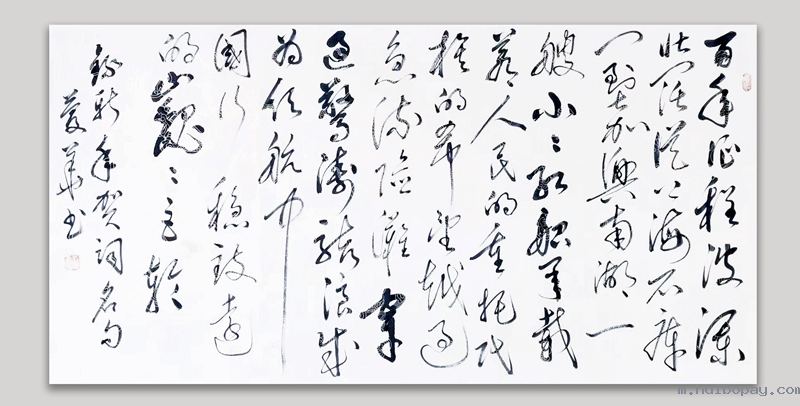 百年征程波澜
壮阔从上海石库
门到加興南湖一
艘小〻红船承载
着人民的重托民
族的希望越过
急流险灘穿
过驚涛骇浪成
为领航中
國行稳致远
的巍〻巨轮
录新年贺词名句
华书
m.huibopay.com